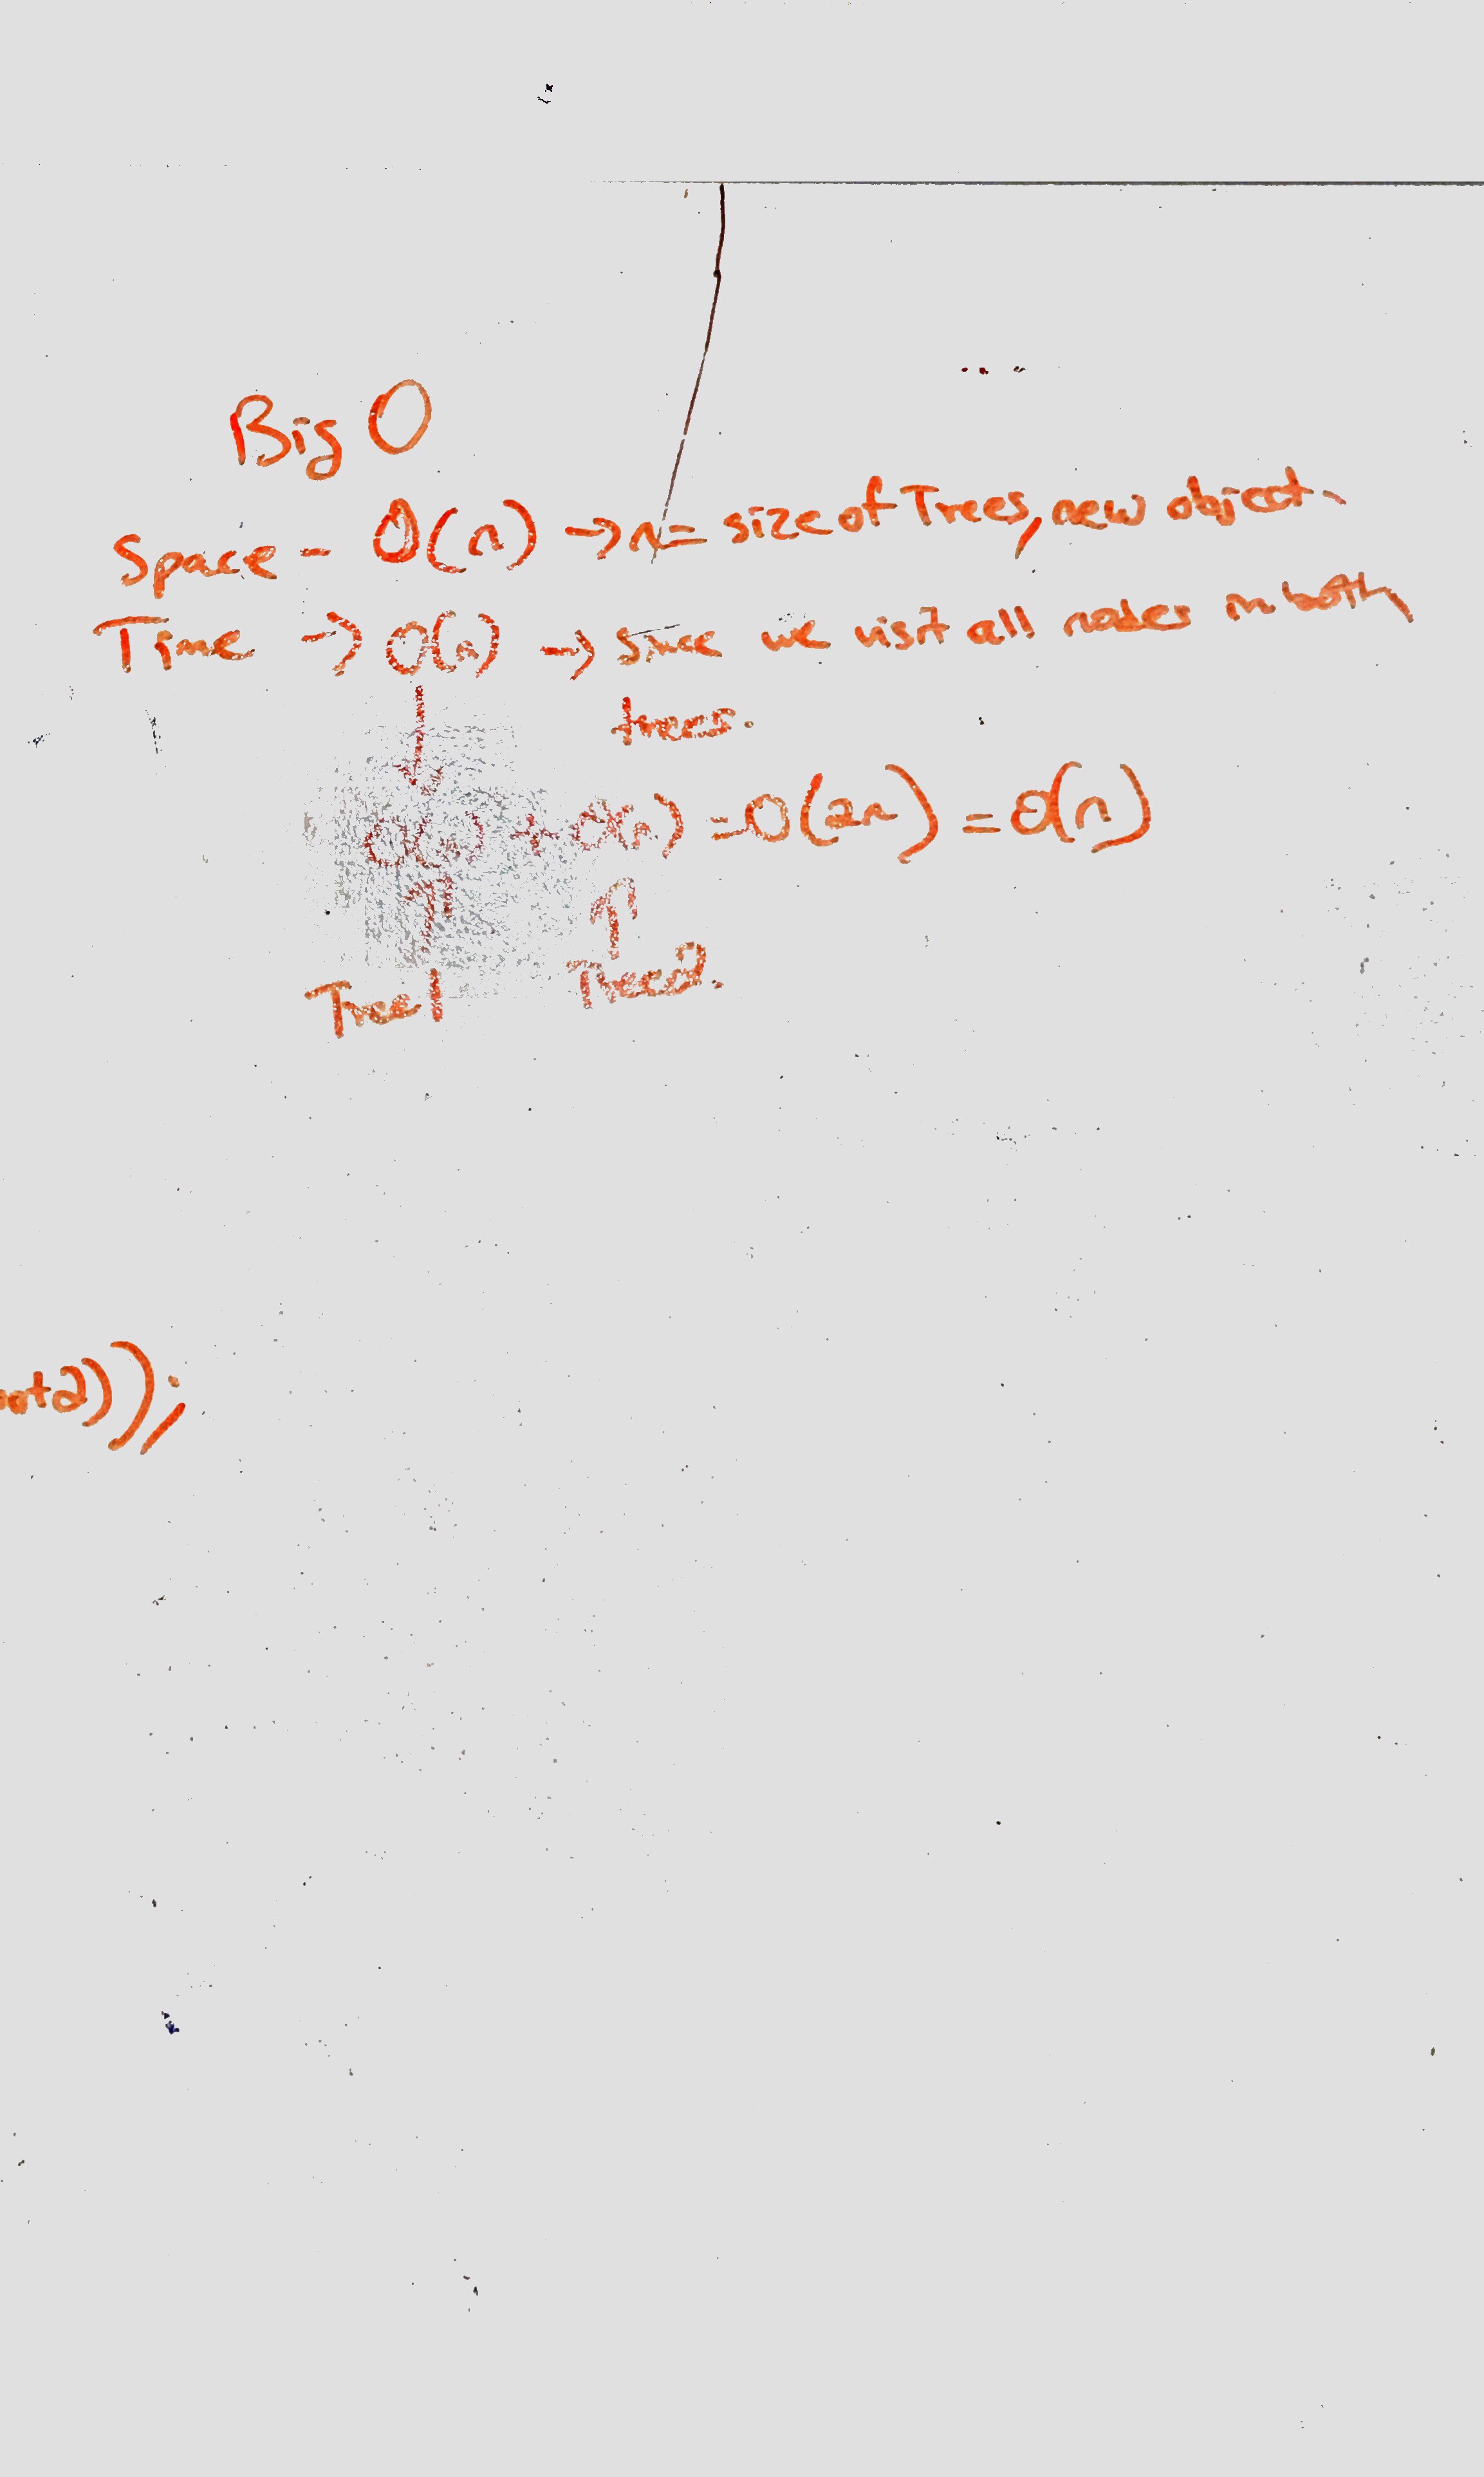 Big O
Space - O(n) → n = size of Trees, new object.
Time → O(n) → Since we visit all nodes in both
trees.
O(n) + O(n) = O(2n) = O(n)
Tree1 Tree2.
2));